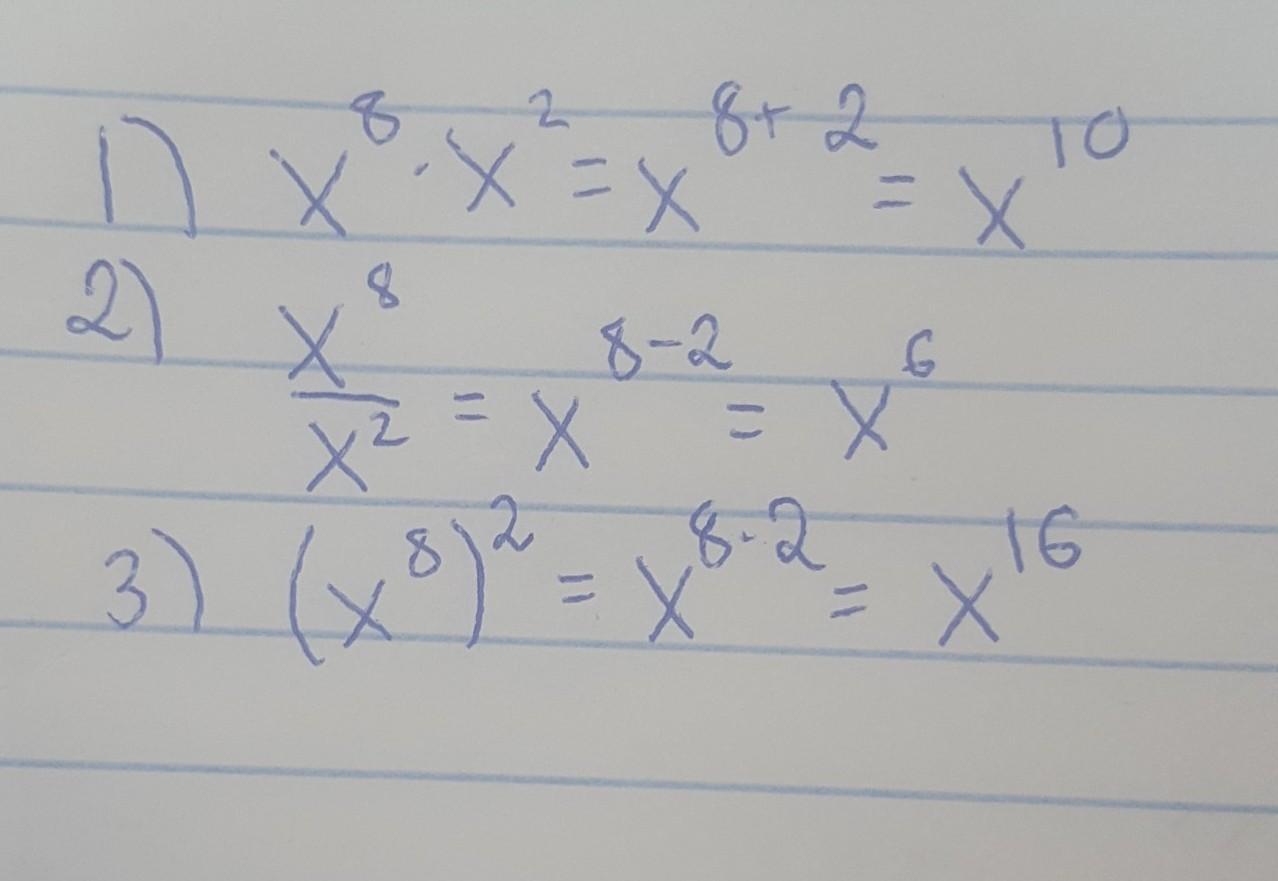 1) x⁸ · x² = x⁸⁺² = x¹⁰
2) x⁸/x² = x⁸⁻² = x⁶
3) (x⁸)² = x⁸·² = x¹⁶